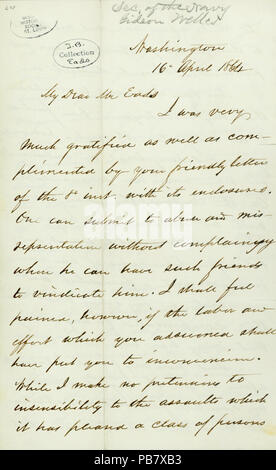 Sec. of the Navy
Gideon Welles
J.B.
Collection
Eads
Washington
16 April 1864
My Dear Mr Eads
I was very
much gratified as well as com-
plimented by your friendly letter
of the 8 inst. with its enclosures.
One can submit to abuse and mis
representation without complaining
when he can have such friends
to vindicate him. I shall feel
pained, however, if the labor and
effort which you assumed shall
have put you to inconvenience.
While I make no pretensions to
insensibility to the assaults which
it has pleased a class of persons
alamy
Image ID: PB7XB3
www.alamy.com